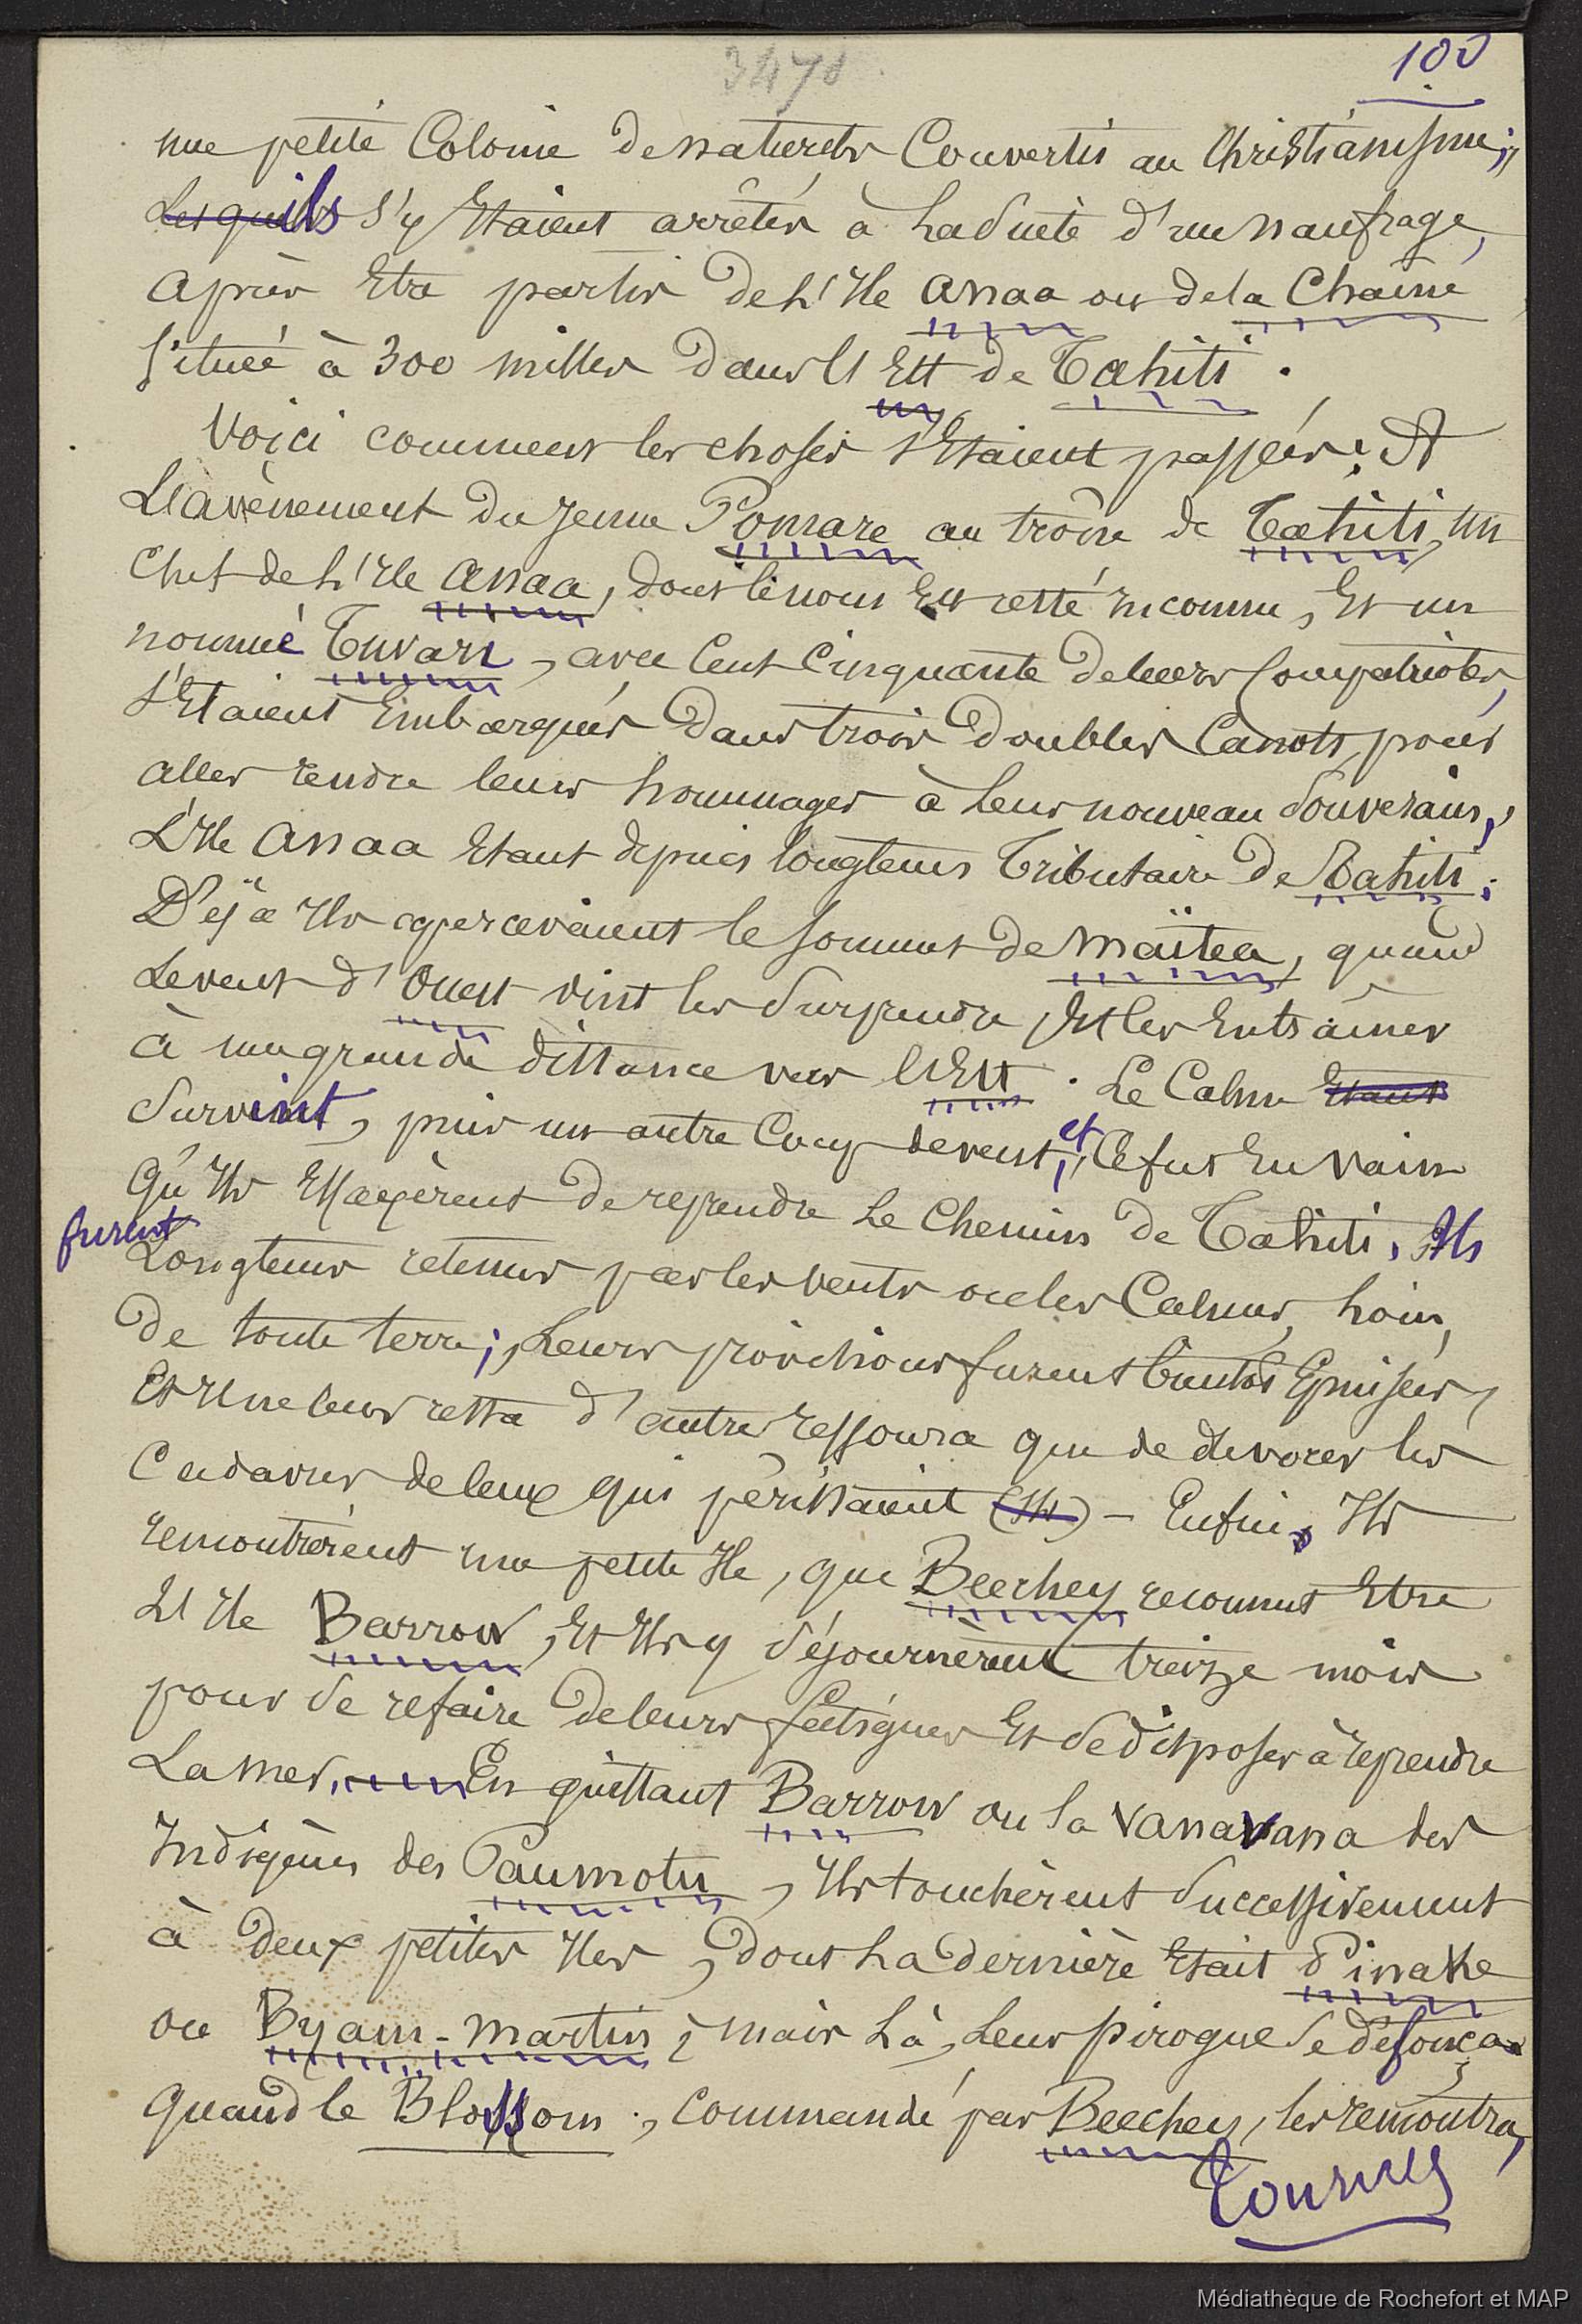 3470
100
une petite Colonie de naturels Convertis au Christianisme;
Lesquels ils s'y Etaient arrêtés à la suite d'un naufrage,
après Etre partis de l'Ile Anaa ou de la Chaîne
située à 300 milles dans l'Est de Tahiti.
Voici comment les choses s'Etaient passées: A
L'avènement du jeune Pomare au trône de Tahiti, un
Chef de l'Ile Anaa, dont le nom Est resté inconnu, Et un
nommé Tuwari, avec Cent Cinquante de leurs Compatriotes,
s'Etaient Embarqués dans trois doubles Canots, pour
aller rendre leurs hommages à leur nouveau Souverain,
L'Ile Anaa Etant depuis longtems Tributaire de Tahiti;
Déjà Ils apercevaient le sommet de Maïtea, quand
Le vent d'Ouest vint les Surprendre, Et les Entraîner
à une grande distance vers l'Est. Le Calme Etant
Survint, puis un autre Coup de vent, et Ce fut En vain
Qu'Ils Essayèrent de reprendre Le Chemin de Tahiti. Ils
furent
Longtems retenus par les vents ou les Calmes, Loin,
De toute terre; Leurs provisions furent bientôt Epuisées,
Et Il ne leur resta d'autre ressource que de dévorer les
Cadavres de Ceux qui périssaient (Ils) – Enfin, Ils
rencontrèrent une petite Ile, que Beechey reconnut Etre
L'Ile Barrow, Et Ils y séjournèrent treize mois
pour se refaire de leurs fatigues Et se disposer à reprendre
La mer. En quittant Barrow ou la Vanavana des
Indigènes des Paumotu, Ils touchèrent Successivement
à deux petites Iles, dont La dernière Etait Pinake
ou Byam-Martin; mais Là, Leur pirogue se défonça
Quand le Blossom, Commandé par Beechey, les rencontra,
Tournez
Médiathèque de Rochefort et MAP